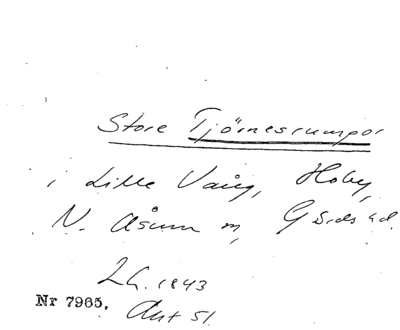 Store Tjörnesrumpor
i Lille Vång, Hoby,
N. Åsum sn, Gärds hd.
LH. 1843
Nr 7965. Akt 51.